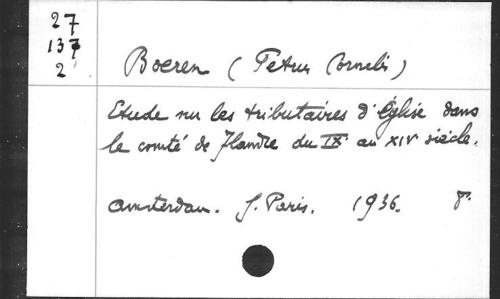 27
137
2
Boeren (Petrus Cornelis)
Etude sur les tributaires d'Église dans
le comté de Flandre du IXe au XIVe siècle.
Amsterdam. J. Paris. 1936. 8°.